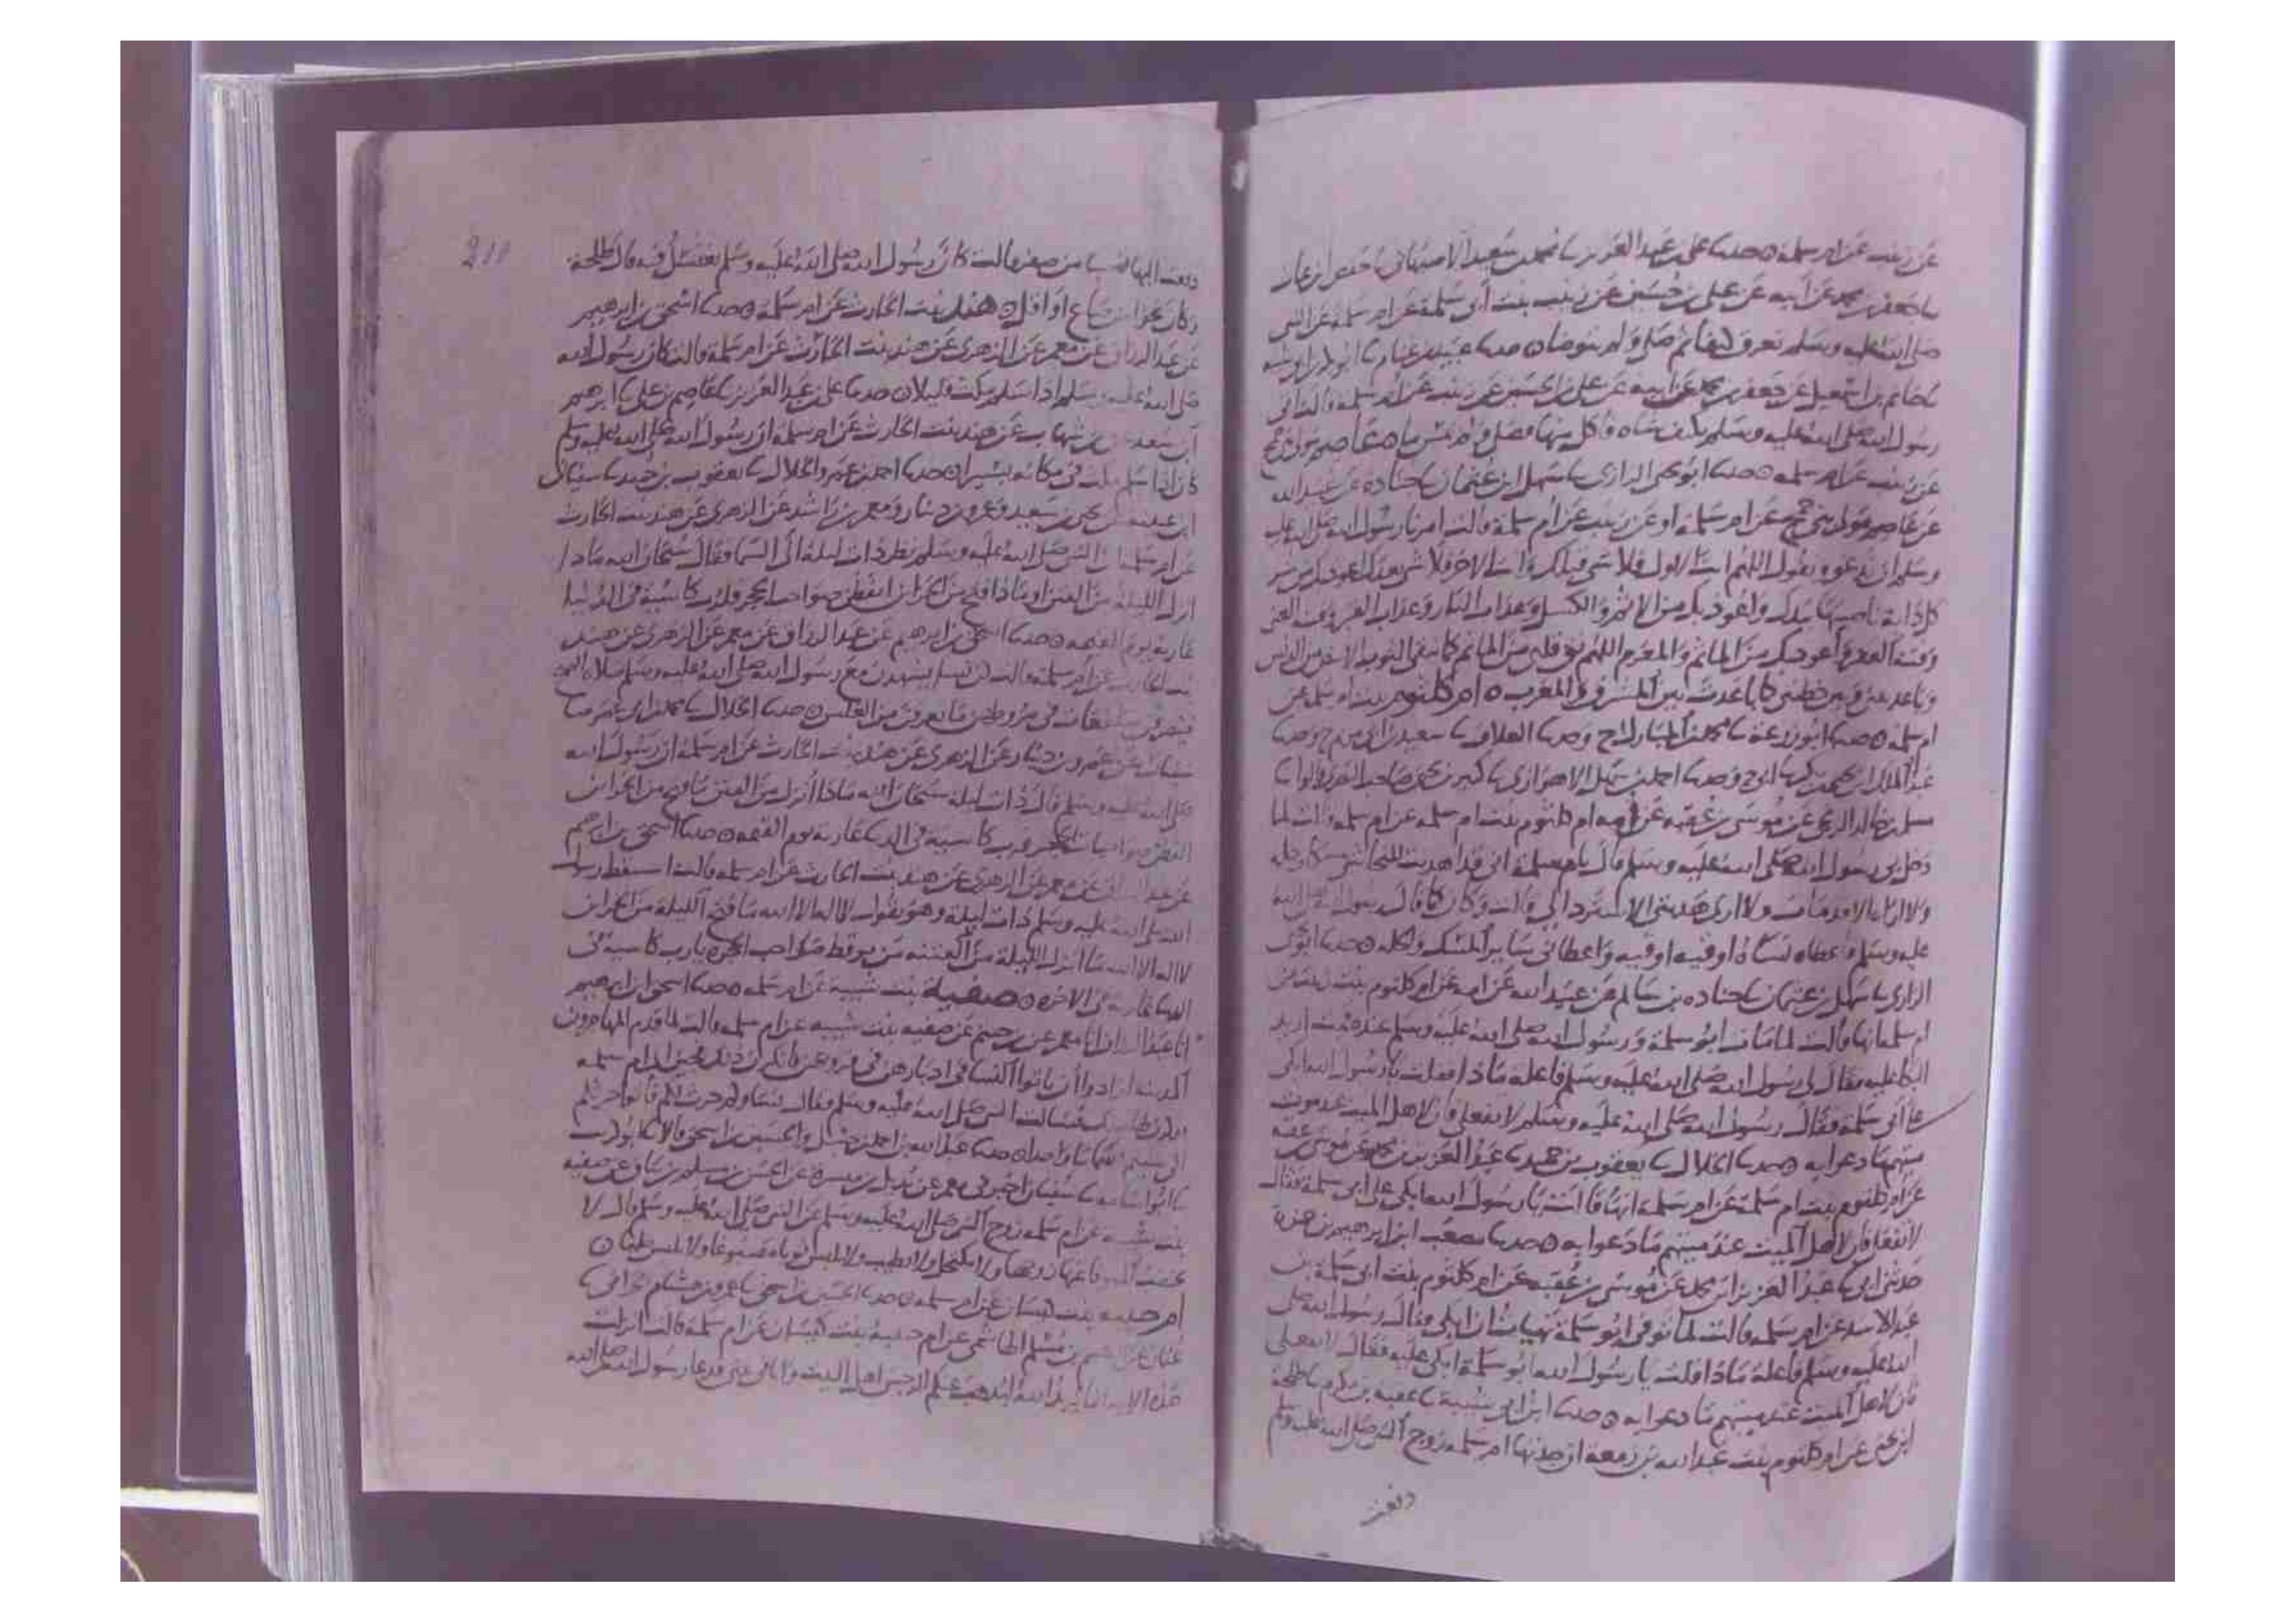 عن زينب عن ام سلمة ه حدثنا على بن عبد العزيز نا محمد بن سعيد الاصبهاني نا حفص بن غياث
نا جعفر بن محمد عن ابيه عن على بن حسين عن زينب بنت أبى سلمة عن ام سلمة عن النبى
صلى الله عليه وسلم تعرق كتفا ثم صلى ولم يتوضا ه حدثنا عبيد بن غنام نا ابو بكر بن ابى شيبة
نا حاتم بن اسمعيل عن جعفر بن محمد عن ابيه عن على بن الحسين عن زينب عن ام سلمة قالت اتى
رسول الله صلى الله عليه وسلم بكتف شاه فأكل منها فصلى ولم يمس ماء ه عاصم مولى
عن زينب عن ام سلمه ه حدثنا ابو يحيى الرازى نا سهل ابن عثمان نا جنادة عن عبيد الله
عن عاصم مولى عن ام سلمة او عن زينب عن ام سلمة قالت امرنا رسول الله صلى الله عليه
وسلم ان ندعوه ونقول اللهم انت الاول فلا شى قبلك وانت الاخر فلا شى بعدك اعوذ بك من شر
كل دابة ناصيتها بيدك واعوذ بك من الاثم والكسل وعذاب النار وعذاب القبر وفتنة الغنى
وفتنة الفقر وأعوذ بك من الماثم والمغرم اللهم نق قلبى من الماثم كما نقى الثوب الابيض من الدنس
وباعد بينى وبين خطيئتى كما باعدت بين المشرق والمغرب ه ام كلثوم بنت ام سلمة عن
ام سلمة ه حدثنا ابو زرعة نا محمد بن المبارك ح وحدثنا العلاف نا سعيد بن ابى مريم ح وحدثنا
عبد الملك بن يحيى بن بكير نا ابى ح وحدثنا احمد بن سهل الاهوازى نا كبير بن يحيى صاحب البصرى قالوا نا
مسلم بن خالد الزنجى عن موسى بن عقبه عن امه ام كلثوم بنت ام سلمه عن ام سلمه قالت لما
دخل بى رسول الله صلى الله عليه وسلم قال يا ام سلمة انى قد اهديت للنجاشى مسكا وحله
ولا اراه الا قد مات ولا ارى هديتى الا سترد الى قالت وكان كما قال رسول الله صلى الله
عليه وسلم فاعطاه نساه اوقيه اوقيه واعطانى سائر المسك والحله ه حدثنا ابو يحيى
الرازى نا سهل بن عثمان نا جناده بن سالم عن عبيد الله عن امه عن ام كلثوم بنت زينب عن
ام سلمة انها قالت لما مات ابو سلمة ورسول الله صلى الله عليه وسلم عنده قمت اريد
البكا عليه فقال لى رسول الله صلى الله عليه وسلم فاعلة ماذا فقلت يا رسول الله ابكى
على أبى سلمة فقال رسول الله صلى الله عليه وسلم لا تفعلى فان لاهل الميت عند موت
ميتهم ما دعوا به ه حدثنا الخلال نا يعقوب بن حميد نا عبد العزيز بن محمد عن موسى بن عقبه
عن ام كلثوم بنت ام سلمة عن ام سلمة انها قالت يا رسول الله ابكى على ابى سلمة فقال
لا تفعل فان لاهل الميت عند ميتهم ما دعوا به ه حدثنا مصعب ابن ابرهيم بن حمزة
حدثنى ابى نا عبد العزيز ابن محمد عن موسى بن عقبه عن ام كلثوم بنت ابى سلمة بن
عبد الاسد عن ام سلمه قالت لما توفى ابو سلمة تهيات ان ابكى فقال رسول الله صلى
الله عليه وسلم فاعلة ماذا قلت يا رسول الله ابو سلمة ابكى عليه فقال لا تفعلى
فان لاهل الميت عند ميتهم ما دعوا به ه حدثنا ابن ابى شيبة نا عقبه بن مكرم نا طلحة
ابن يحيى عن ام كلثوم بنت عبد الله بن زمعة ان جدتها ام سلمه زوج النبى صلى الله عليه وسلم
دفعت
210
دفعت اليها من صفر قالت كان رسول الله صلى الله عليه وسلم يغتسل فيه قال طلحة
وكان نحوا من صاع او اقل ه هند بنت الحارث عن ام سلمة ه حدثنا اسحق بن ابرهيم
عن عبد الرزاق عن معمر عن الزهرى عن هند بنت الحارث عن ام سلمة قالت كان رسول الله
صلى الله عليه وسلم اذا سلم مكث قليلا ه حدثنا على بن عبد العزيز نا عاصم بن على نا ابرهيم
ابن سعد عن ابن شهاب عن هند بنت الحارث عن ام سلمة ان رسول الله صلى الله عليه وسلم
كان اذا سلم مكث فى مكانه يسيرا ه حدثنا احمد بن عمرو الخلال نا يعقوب بن حميد نا سفيان
ابن عيينه عن يحيى بن سعيد وعمرو بن دينار ومعمر بن راشد عن الزهرى عن هند بنت الحارث
عن ام سلمة ان النبى صلى الله عليه وسلم نظر ذات ليلة الى السما وقال سبحان الله ماذا
انزل الليلة من الفتن وماذا فتح من الخزائن ايقظن صواحب الحجر فلرب كاسية فى الدنيا
عارية يوم القيمه ه حدثنا اسحق بن ابرهيم عن عبد الرزاق عن معمر عن الزهرى عن هند
بنت الحارث عن ام سلمة قالت كن نسا يشهدن مع رسول الله صلى الله عليه وسلم صلاة الصبح
فينصرفن متلفعات فى مروطهن ما يعرفن من الغلس ه حدثنا الخلال نا محمد بن ابى عمر نا
سفيان عن عمرو بن دينار عن الزهرى عن هند بنت الحارث عن ام سلمة ان رسول الله
صلى الله عليه وسلم قال ذات ليلة سبحان الله ماذا أنزل من الفتن وما فتح من الخزائن
ايقظن صواحبات الحجر فرب كاسية فى الدنيا عارية يوم القيمه ه حدثنا اسحق بن ابرهيم
عن عبد الرزاق عن معمر عن الزهرى عن هند بنت الحارث عن ام سلمه قالت استيقظ رسول
الله صلى الله عليه وسلم ذات ليلة وهو يقول لا اله الا الله ما فتح الليلة من الخزائن
لا اله الا الله ما أنزل الليلة من الفتنه من يوقظ صواحب الحجره يا رب كاسية فى
الدنيا عارية فى الاخره ه صفية بنت شيبة عن ام سلمه ه حدثنا اسحق ابن ابرهيم
انا عبد الرزاق انا معمر عن خثيم عن صفيه بنت شيبه عن ام سلمه قالت لما قدم المهاجرون
المدينه ارادوا أن ياتوا النسا فى ادبارهن فى فروجهن فانكرن ذلك فجئن الى ام سلمه
فذكرن ذلك فسالت النبى صلى الله عليه وسلم فقال نساوكم حرث لكم فاتوا حرثكم
انى شيتم صماما واحدا ه حدثنا عبد الله بن احمد بن حنبل والحسين بن اسحق قالا نا ابو كريب
نا ابو اسامه نا سفيان اخبرنى معمر عن بديل بن ميسرة عن الحسن بن مسلم بن يناق عن صفيه
بنت شيبه عن ام سلمه زوج النبى صلى الله عليه وسلم عن النبى صلى الله عليه وسلم قال لا
تختضب المتوفى عنها زوجها ولا تكتحل ولا تطيب ولا تلبس ثوبا مصبوغا ولا تلبس حليا ه
ام حبيبه بنت كيسان عن ام سلمه ه حدثنا الحسين بن اسحق نا عمرو بن هشام الحرانى نا
عثمان عن القسم بن مسلم الهاشمى عن ام حبيبة بنت كيسان عن ام سلمة قالت انزلت
هذه الاية انما يريد الله ليذهب عنكم الرجس اهل البيت وانا فى بيتى فدعا رسول الله صلى الله